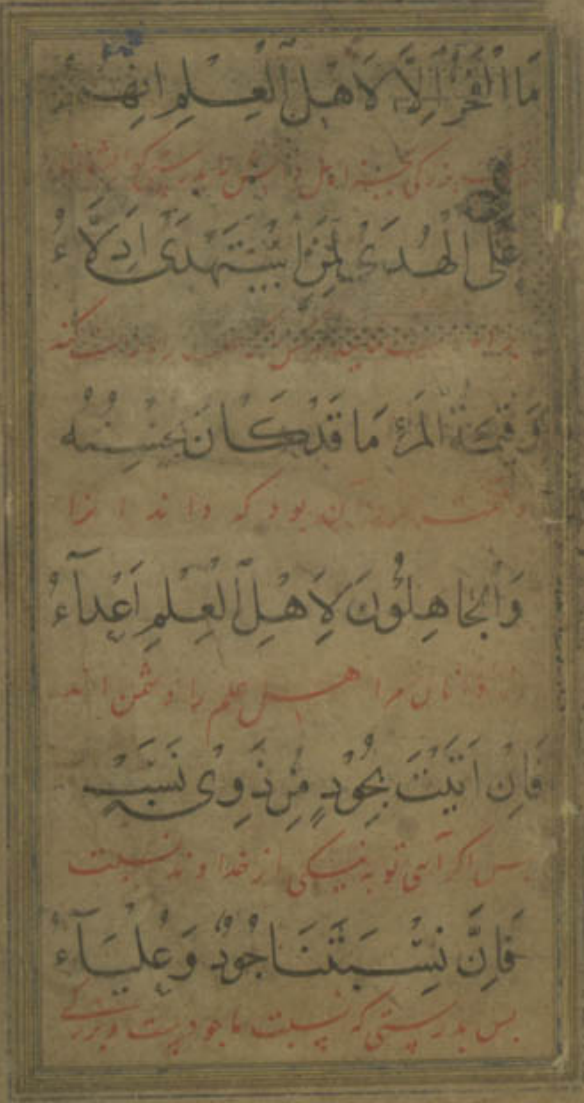 مَا الْفَخْرُ اِلَّا لِاَهْلِ الْعِلْمِ اِنَّهُمُ
بزرگی اهل بدرستی که ایشان
عَلَى الْهُدَى لِمَنِ اسْتَهْدَى اَدِلَّاءُ
بر
وَقِيمَةُ الْمَرْءِ مَا قَدْ كَانَ يُحْسِنُهُ
بود که داند انرا
وَالْجَاهِلُونَ لِاَهْلِ الْعِلْمِ اَعْدَآءُ
نادانان مر اهل علم را دشمن اند
فَاِنْ اَتَيْتَ بِجُودٍ مِنْ ذَوِى نَسَبٍ
پس اگر آیی تو به نیکی از خداوند نسبت
فَاِنَّ نِسْبَتَنَا جُودٌ وَعُلْيَآءُ
پس بدرستی که نسبت ما جودیست و بزرگی